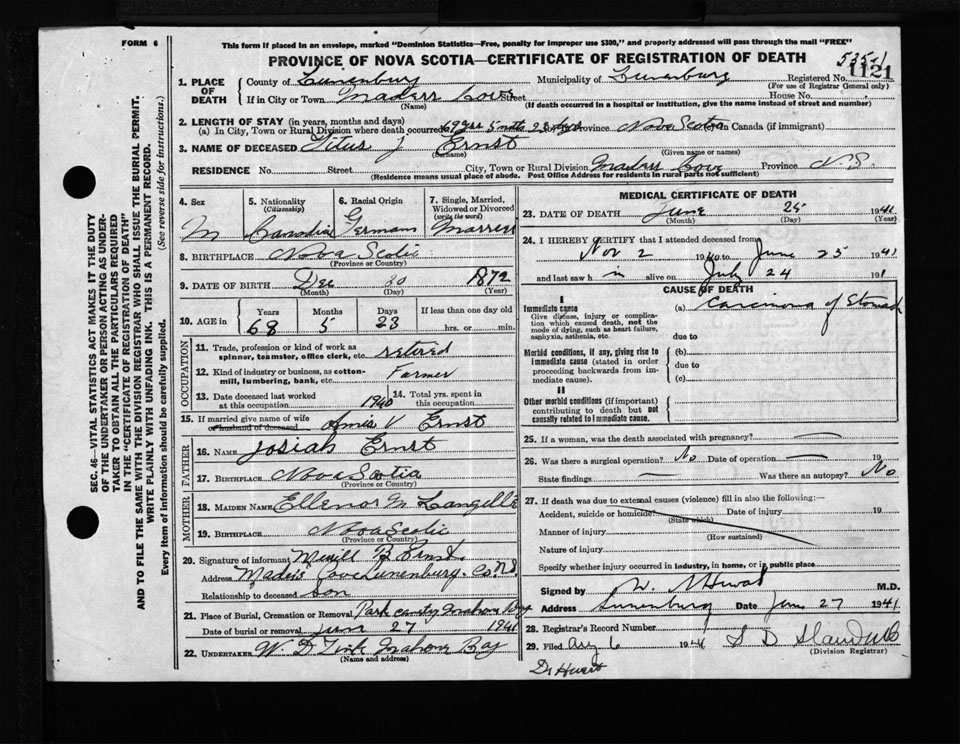 FORM 6
This form if placed in an envelope, marked "Dominion Statistics—Free, penalty for improper use $300," and properly addressed will pass through the mail "FREE"
PROVINCE OF NOVA SCOTIA—CERTIFICATE OF REGISTRATION OF DEATH
1. PLACE OF DEATH
County of Lunenburg Municipality of Lunenburg Registered No. 1121
(For use of Registrar General only)
If in City or Town Maders Cove Street House No.
(Name) (If death occurred in a hospital or institution, give the name instead of street and number)
2. LENGTH OF STAY (in years, months and days)
(a) In City, Town or Rural Division where death occurred Province Nova Scotia in Canada (if immigrant)
3. NAME OF DECEASED Titus J Ernst
(Surname) (Given name or names)
RESIDENCE No. Street City, Town or Rural Division Maders Cove Province N.S.
(Residence means usual place of abode. Post Office Address for residents in rural parts not sufficient)
4. Sex M
5. Nationality (Citizenship) Canadian
6. Racial Origin German
7. Single, Married, Widowed or Divorced (write the word) Married
8. BIRTHPLACE Nova Scotia
(Province or Country)
9. DATE OF BIRTH Dec 1872
(Month) (Day) (Year)
10. AGE in Years Months Days If less than one day old
68 5 23 hrs. or min.
OCCUPATION
11. Trade, profession or kind of work as spinner, teamster, office clerk, etc. retired
12. Kind of industry or business, as cotton-mill, lumbering, bank, etc. Farmer
13. Date deceased last worked at this occupation 1940
14. Total yrs. spent in this occupation
15. If married give name of wife or husband of deceased V Ernst
FATHER
16. NAME Josiah Ernst
17. BIRTHPLACE Nova Scotia
(Province or Country)
MOTHER
18. MAIDEN NAME Ellenor M Langille
19. BIRTHPLACE Nova Scotia
(Province or Country)
20. Signature of informant Ernst
Address Maders Cove Lunenburg Co N.S.
Relationship to deceased Son
21. Place of Burial, Cremation or Removal Mahone Bay
Date of burial or removal June 27 1941
22. UNDERTAKER Mahone Bay
(Name and address)
MEDICAL CERTIFICATE OF DEATH
23. DATE OF DEATH June 25 1941
(Month) (Day) (Year)
24. I HEREBY CERTIFY that I attended deceased from
Nov 2 1940 to June 25 1941
and last saw h im alive on July 24 191
CAUSE OF DEATH
I
Immediate cause
Give disease, injury or complication which caused death, not the mode of dying, such as heart failure, asphyxia, asthenia, etc.
(a) Carcinoma of Stomach
due to
Morbid conditions, if any, giving rise to immediate cause (stated in order proceeding backwards from immediate cause).
(b)
due to
(c)
II
Other morbid conditions (if important) contributing to death but not causally related to immediate cause.
25. If a woman, was the death associated with pregnancy?
26. Was there a surgical operation? No Date of operation 19
State findings Was there an autopsy? No
27. If death was due to external causes (violence) fill in also the following:—
Accident, suicide or homicide? Date of injury 19
(State which)
Manner of injury
(How sustained)
Nature of injury
Specify whether injury occurred in industry, in home, or in public place
Signed by M.D.
Address Lunenburg Date June 27 1941
28. Registrar's Record Number
29. Filed Aug 6 1941
(Division Registrar)
SEC. 46—VITAL STATISTICS ACT MAKES IT THE DUTY
OF THE UNDERTAKER OR PERSON ACTING AS UNDER-
TAKER TO OBTAIN ALL THE PARTICULARS REQUIRED
IN THE "CERTIFICATE OF REGISTRATION OF DEATH"
AND TO FILE THE SAME WITH THE DIVISION REGISTRAR WHO SHALL ISSUE THE BURIAL PERMIT.
WRITE PLAINLY WITH UNFADING INK. THIS IS A PERMANENT RECORD.
Every item of information should be carefully supplied. (See reverse side for instructions.)